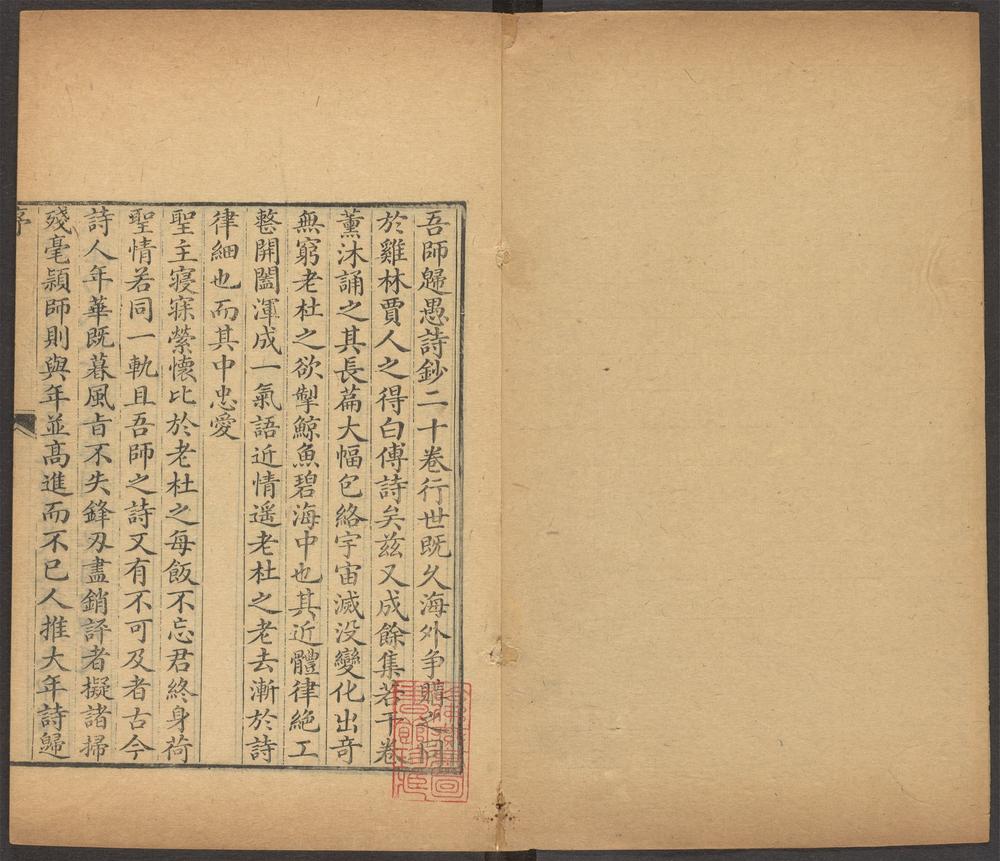 吾師歸愚詩鈔二十卷行世既久海外争購之同
於雞林賈人之得白傅詩矣茲又成餘集若干卷
薰沐誦之其長篇大幅包絡宇宙滅没變化出奇
無窮老杜之欲掣鯨魚碧海中也其近體律絶工
整開闔渾成一氣語近情遥老杜之老去漸於詩
律細也而其中忠愛
聖主寝寐縈懷比於老杜之每飯不忘君終身荷
聖情若同一軌且吾師之詩又有不可及者古今
詩人年華既暮風旨不失鋒刃盡銷評者擬諸掃
殘毫穎師則與年並高進而不已人推大年詩歸
序